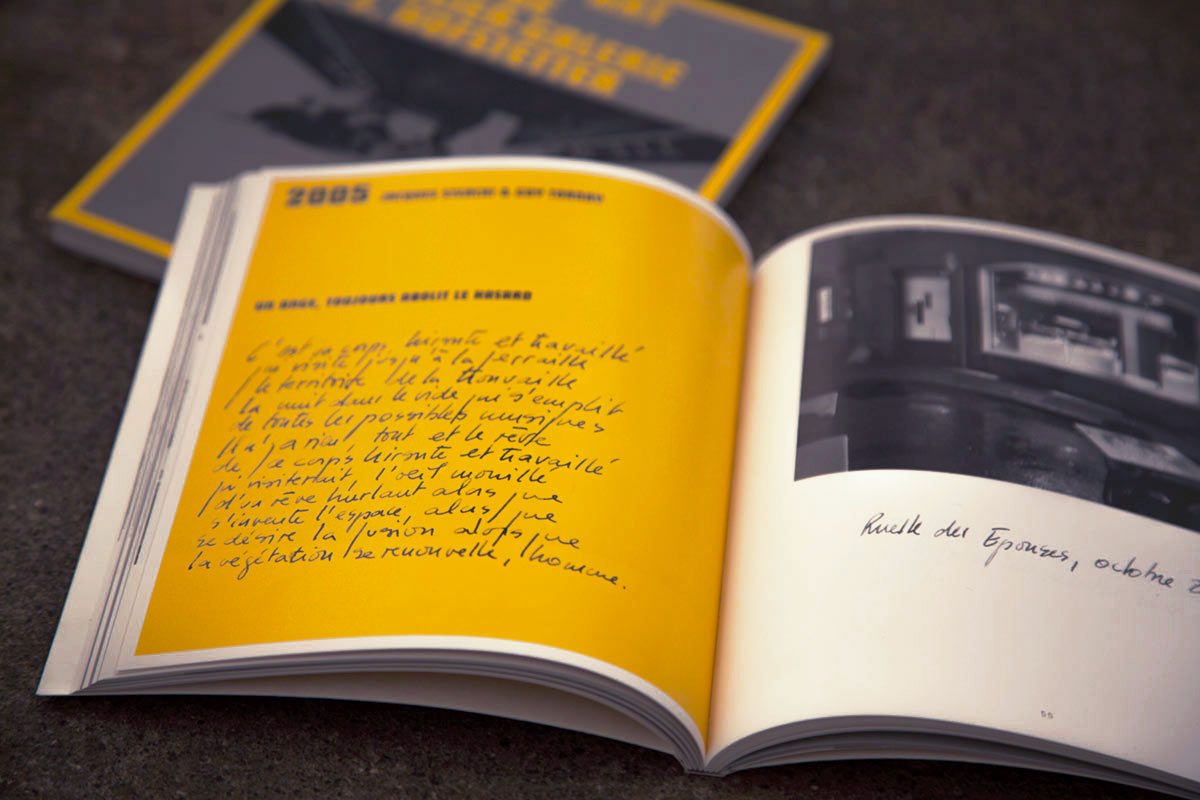 GALERIE
HOFSTETTER
2005 JACQUES
UN ANGE, TOUJOURS ABOLIT LE HASARD
C'est un corps hirsute et travaillé
qui visite jusqu'à la ferraille
le territoire de la trouvaille
la nuit dans le vide qui s'emplit
de toutes les possibles musiques
Il n'y a rien, tout et le rêve
de ce corps hirsute et travaillé
qui visiterait, l'œil mouillé
d'un rêve hurlant alors que
s'invente l'espace, alors que
se désire la fusion alors que
la végétation se renouvelle, l'homme.
Ruelle des Epouses, octobre 2
55